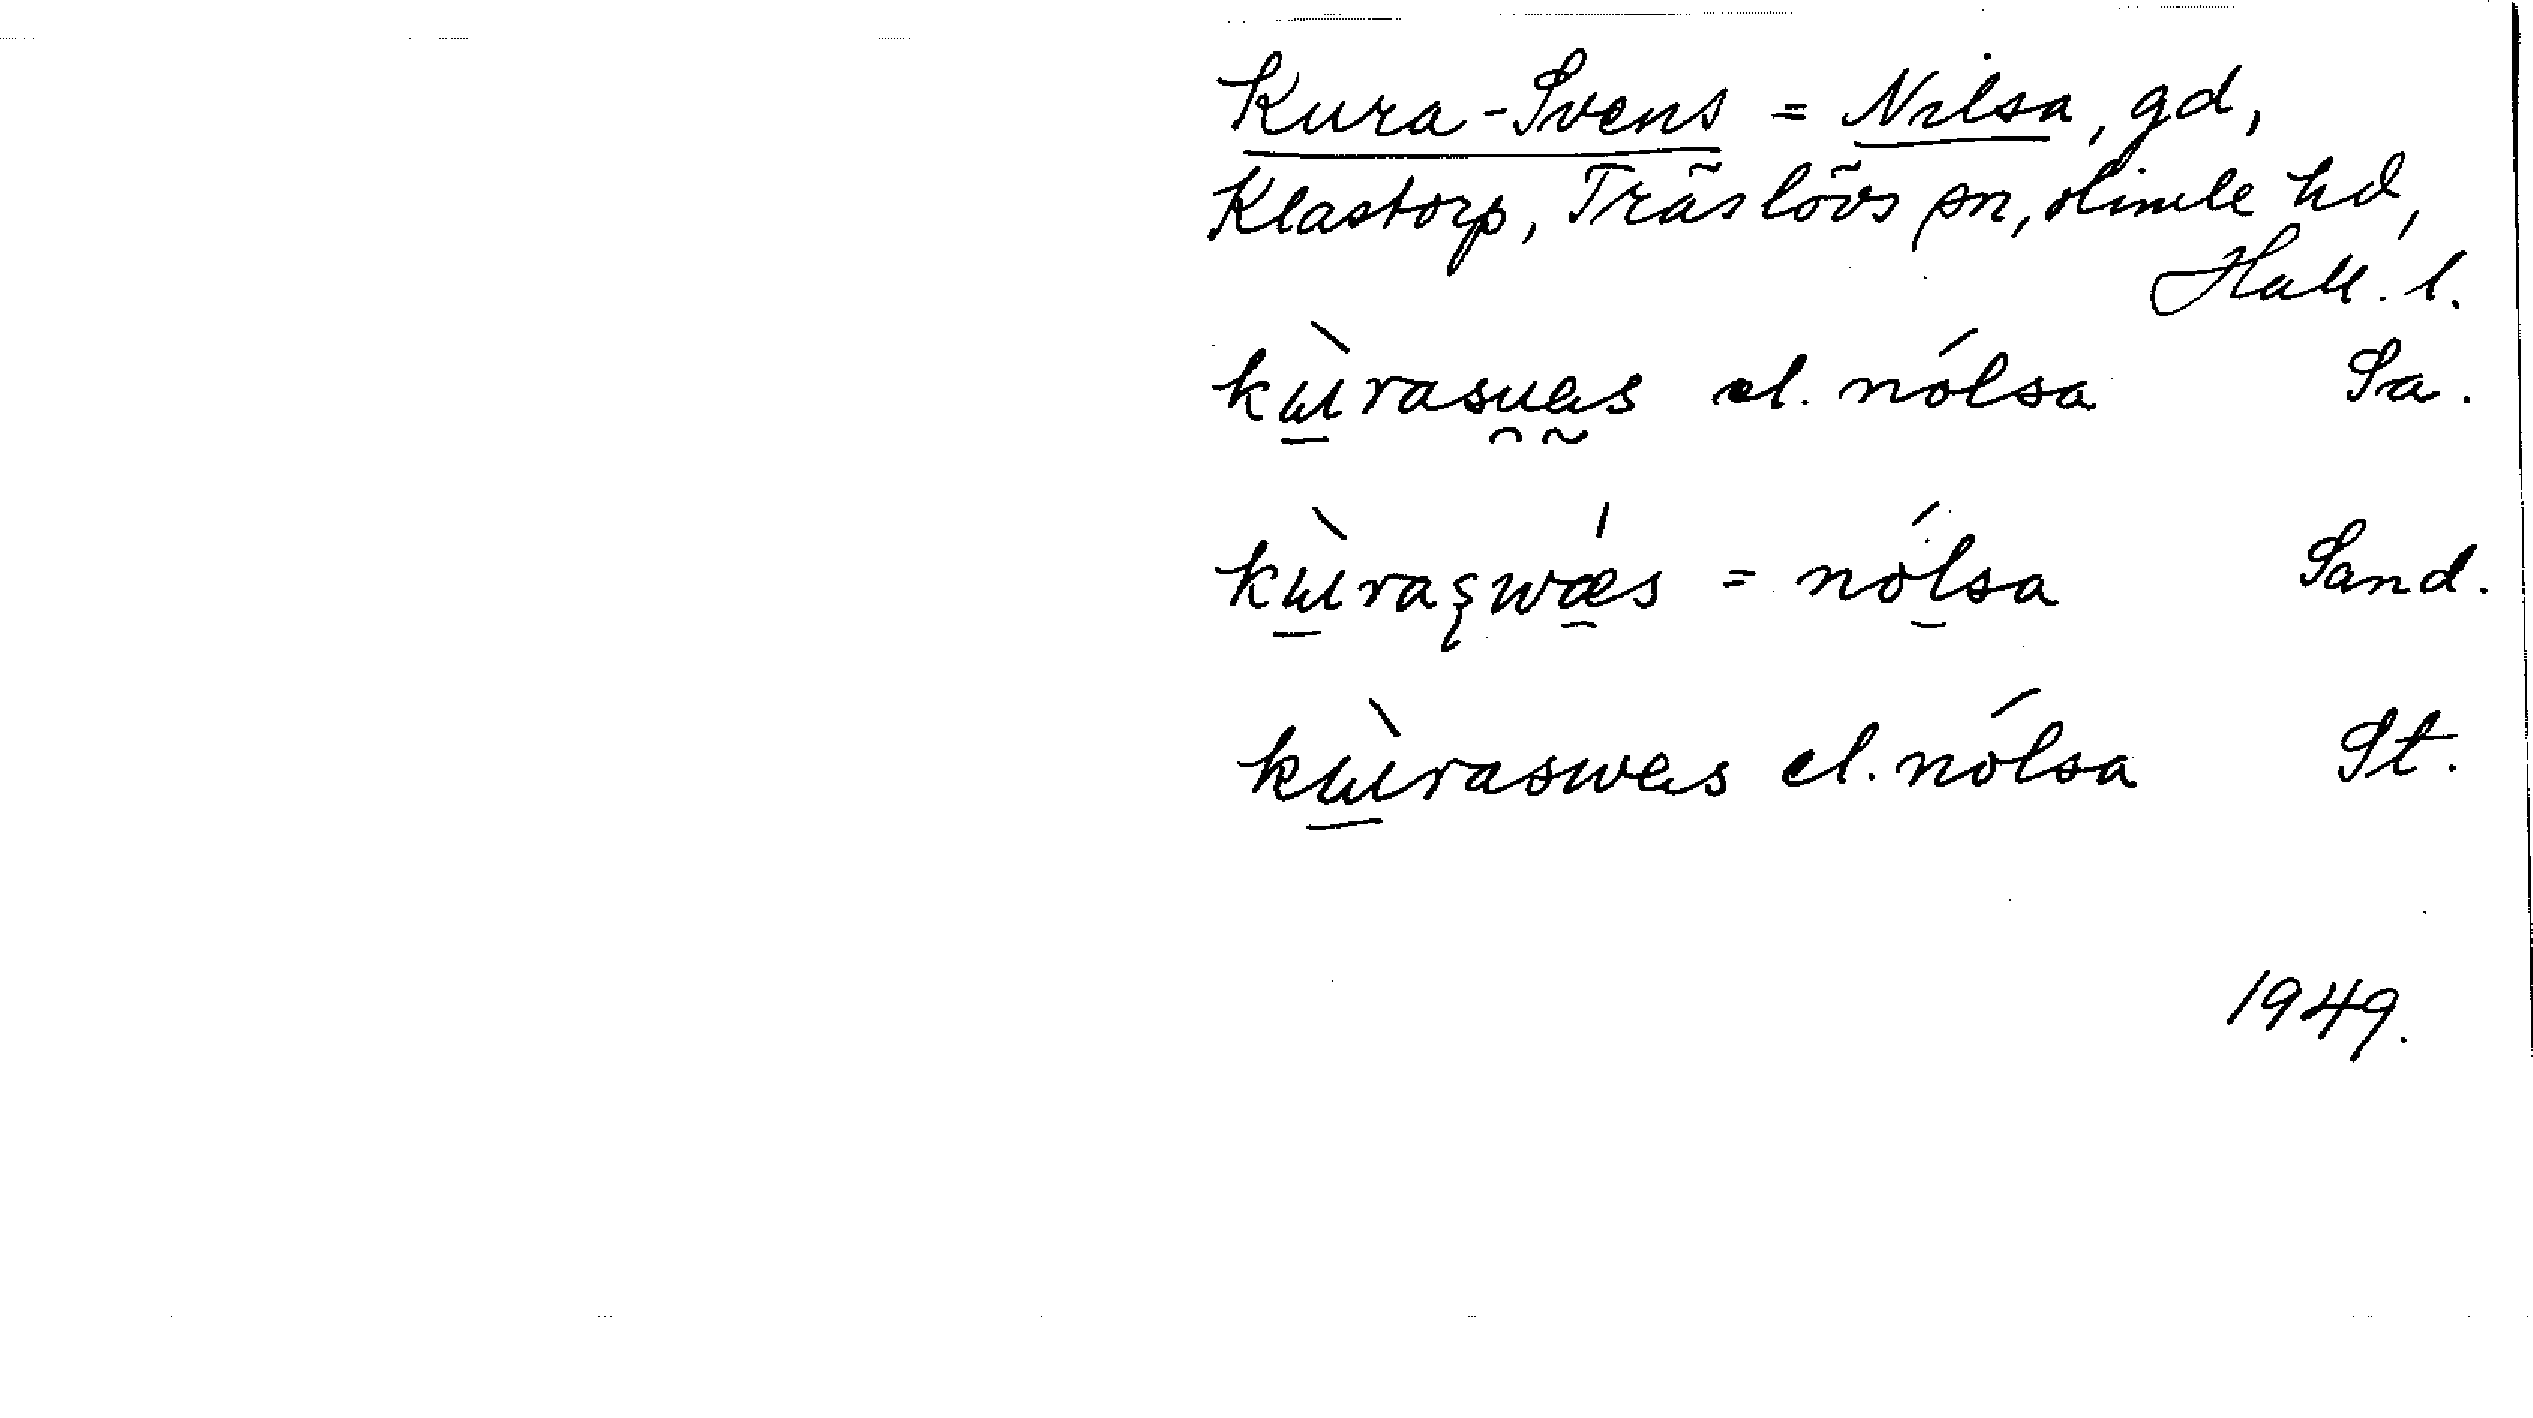 Kura-Svens = Nilsa, gd,
Klastorp, Träslövs sn, Himle hd,
Hall. l.
kɯ̲̀rasu̯æ̰s el. nólsa Sa.
kɯ̲̀raʂwǽs = nólsa Sand.
kɯ̲̀raswæs el. nólsa St.
1949.